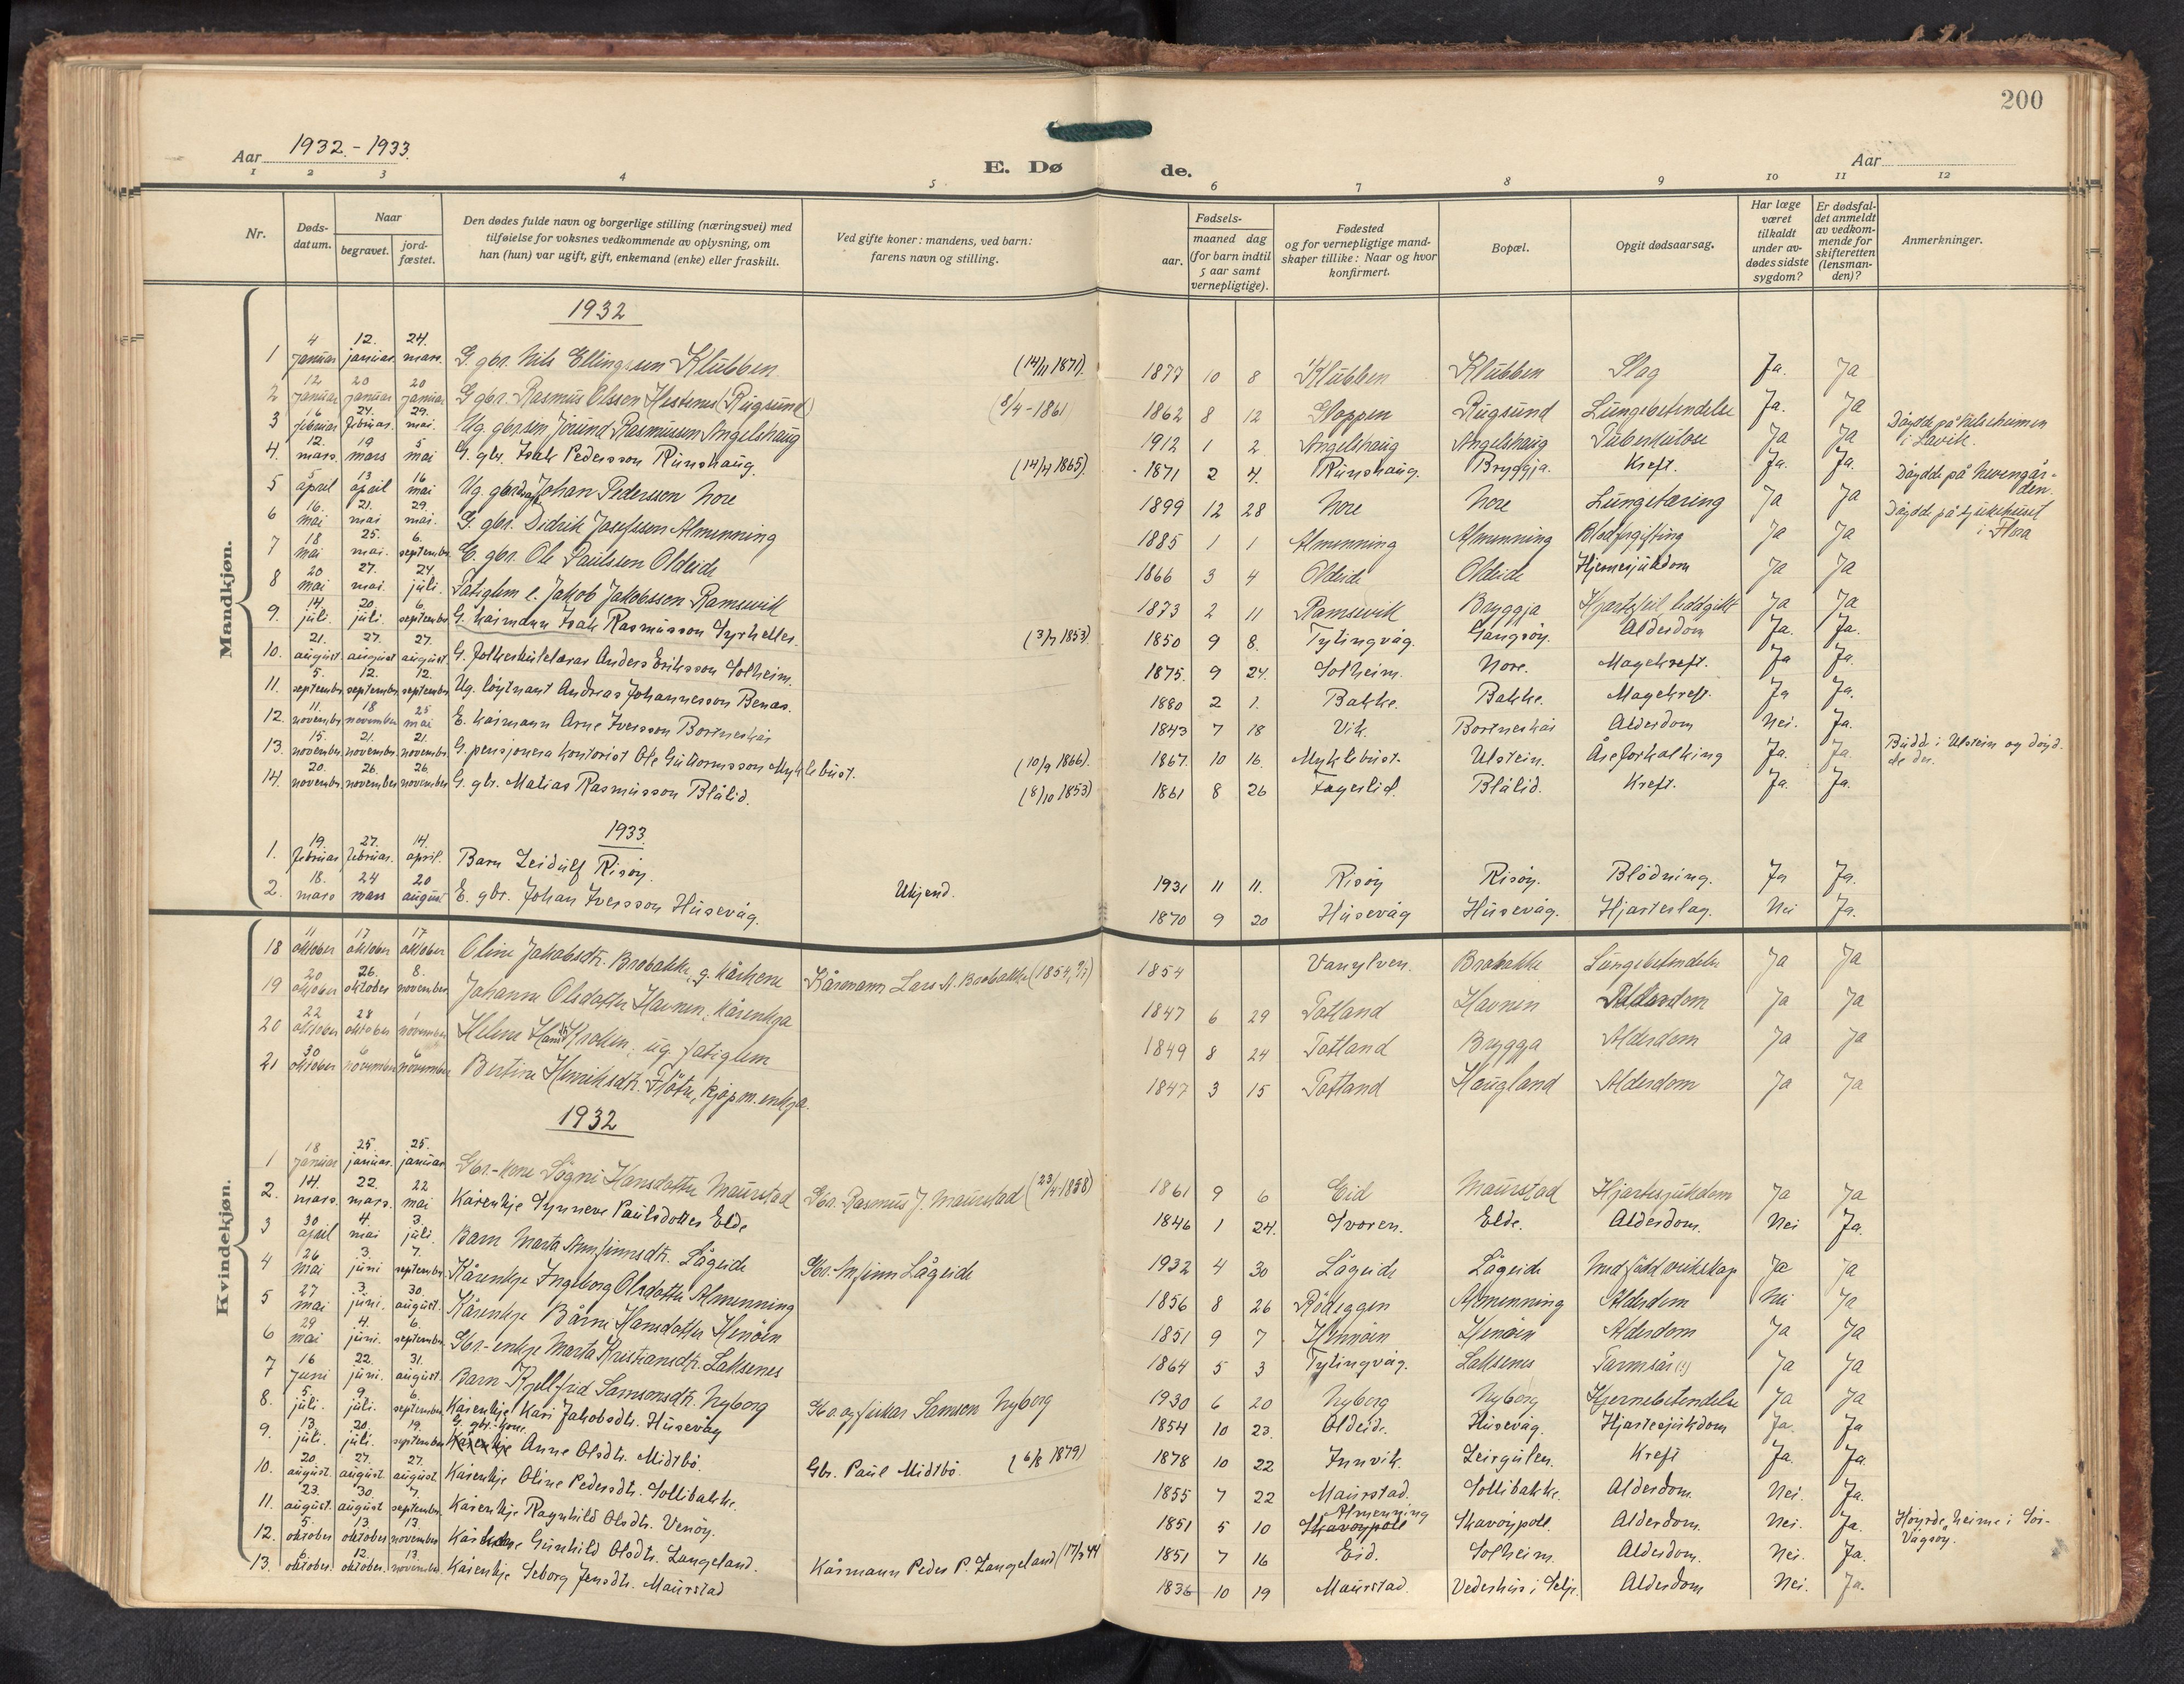 200
Aar 1932.-1933.
E. Dø de.
Aar
1 2 3 4 5 6 7 8 9 10 11 12
Nr.
Døds-datum.
Naar
begravet.
jord-fæstet.
Den dødes fulde navn og borgerlige stilling (næringsvei) med
tilføielse for voksnes vedkommende av oplysning, om
han (hun) var ugift, gift, enkemand (enke) eller fraskilt.
Ved gifte koner: mandens, ved barn:
farens navn og stilling.
Fødsels-
aar.
maaned dag
(for barn indtil
5 aar samt
vernepligtige).
Fødested
og for vernepligtige mand-
skaper tillike: Naar og hvor
konfirmert.
Bopæl.
Opgit dødsaarsag.
Har læge
været
tilkaldt
under av-
dødes sidste
sygdom?
Er dødsfal-
det anmeldt
av vedkom-
mende for
skifteretten
(lensman-
den)?
Anmerkninger.
Mandkjøn.
1932
1 4 januar 12. januar. 24. mars. G. gbr. Nils Ellingsen Klubben (14/11 1871). 1877 10 8 Klubben Klubben Slag Ja. Ja
2 12 januar 20 januar 20 januar G gbr. Rasmus Olssen Hestenes (Rugsund) (8/4-1861 1862 8 12 Gloppen Rugsund Lungebetendelse Ja. Ja
3 16 februar 24. februar. 29. mai. Ug. gbr.sen Jørund Rasmussen Angelshaug 1912 1 2 Angelshaug Angelshaug Tuberkulose Ja Ja Døydde på Helseheimen i Lavik.
4. 12. mars. 19 mars 5 mai G. gbr. Isak Pedersson Runshaug. (14/4 1865). 1871 2 4. Runshaug. Bryggja. Kreft. Ja. Ja. Døydde på Nevengår-den.
5 5 april 13 april 16 mai Ug. Johan Pedersson Nore 1899 12 28 Nore Nore Lungetæring Ja Ja Døydde på sjukehuset i Flora
6 16. mai 21. mai 29. mai. G. gbr. Didrik Josefssen Almenning 1885 1 1 Almenning Almenning Blodforgifting Ja Ja
7 18 mai 25. mai. 6. septembr. E. gbr. Ole Paulssen Oldeide 1866 3 4 Oldeide Oldeide Hjernesjukdom Ja Ja
8 20 mai 27. mai. 24. juli. Fatiglem e. Jakob Jakobssen Ramsevik 1873 2 11 Ramsevik Bryggja Hjartefeil, leddgikt Ja Ja
9. 14. juli. 20. juli. 6. septembr G. kårmann Isak Rasmusson Tyrhelles. (3/7 1853) 1850 9 8. Tytingvåg. Gangsøy. Alderdom Ja. Ja.
10. 21. august 27. august 27. august. G. folkeskulelærar Anders Eriksson Solheim. 1875. 9 24. Solheim. Nore. Magekreft. Ja Ja.
11. 5. septembr 12. septembr 12. septembr. Ug. løytnant Andreas Johannesson Benas. 1880 2 1. Bakke. Bakke. Magekreft. Ja Ja.
12. 11. novembr. 18 november 25 mai E. kårmann Arne Iversson Bortneskår 1843 7 18 Vik. Bortneskår Alderdom Nei. Ja.
13. 15. novembr. 21. november. 21. november. G. pensjonera kontorist Ole Guttormsson Myklebust. (10/9 1866). 1867. 10 16. Myklebust. Ulstein. Åreforkalking Ja. Ja. Budd i Ulstein og døyd-de der.
14. 20. novembr. 26. november 26. november G. gbr. Matias Rasmusson Blålid. (8/10 1853) 1861 8 26 Fagerlid. Blålid. Kreft. Ja. Ja.
1933.
1. 19. februar 27. februar. 14. april. Barn Leidulf Risøy. Ukjend. 1931 11 11. Risøy Risøy. Blødning. Ja Ja.
2. 18. mars 24 mars 20 august E. gbr. Johan Iversson Husevåg. 1870 9 20 Husevåg Husevåg. Hjarteslag. Nei Ja.
Kvindekjøn.
18 11 oktober 17 oktober 17. oktober Oline Jakobsdtr. Brobakke, g. kårkone Kårmann Lars A. Brobakke (1854, 9/7) 1854 Vanylven. Brobakke Lungebetendelse Ja Ja
19 20 oktober 26. oktober 8. november Johanne Olsdotter Havnen, kårenkja 1847 6 29 Totland Havnen Alderdom Ja Ja
20 22 oktober 28 oktober 1 november Helene Hansdtr Kroken, ug. fatiglem 1849 8 24 Totland Bryggja Alderdom Ja Ja
21 30 oktober 6 november 6 november Bertine Henriksdtr. Fløtre, kjøpm. enkja. 1847 3 15 Totland Haugland Alderdom Ja Ja
1932
1 18 januar 25. januar. 25. januar Gbr.-kone Søgni Hansdotter Maurstad Gbr. Rasmus J. Maurstad (23/4 1858) 1861 9 6 Eid Maurstad Hjartesjukdom Ja Ja
2. 14. mars. 22. mars. 22 mai Kårenkje Synneve Paulsdotter Elde 1846 1 24. Svoren. Elde. Alderdom. Nei Ja.
3 30 april 4. mai 3. juli. Barn Marta Annfinnsdtr. Lågeide Gbr. Anfinn Lågeide 1932 4 30 Lågeide Lågeide Medfødd veikskap Ja Ja
4 26 mai 3. juni 7. septembr. Kårenkje Ingeborg Olsdotter Almenning 1856 8 26 Rødeggen Almenning Alderdom Nei Ja
5 27 mai 3. juni. 30. august. Kårenkje Bårni Hansdotter Henøen 1851 9 7 Hennøen Henøen Alderdom Ja Ja
6 29 mai 4. juni. 6. septembr. Gbr.-enkje Marta Kristiansdtr. Laksenes 1864 5 3 Tytingvåg. Laksenes Tarmsår (!) Ja Ja
7 16 Juni 22. juni. 31. august. Barn Kjellfrid Samsonsdtr. Nyborg Gbr. og fiskar Samson Nyborg 1930 6 20 Nyborg Nyborg Hjernebetendelse Ja Ja
8. 5. juli. 9. juli. 6. september. Kårenkje Kari Jakobsdtr. Husevåg 1854 10 23. Oldeide. Husevåg. Hjartesjukdom Ja. Ja
9. 13. juli. 20. juli. 19. september G. gbr. kone Kårenkje Anne Olsdtr. Midtbø. Gbr. Paul Midtbø. (6/8 1879) 1878 10 22 Innvik. Leirgulen. Kreft Ja. Ja.
10. 20. august. 27. august. 27. august. Kårenkje Oline Pedersdtr. Sollibakke. 1855 7 22 Maurstad. Sollibakke. Alderdom. Nei. Ja.
11. 23. august. 30. august 7. september. Kårenkje Ragnhild Olsdtr. Venøy. 1851 5 10 Almenning Skavøypoll Skavøypoll. Alderdom. Nei. Ja. Høyrde heime i Sør-Vågsøy.
12. 5. oktober 13. oktober 13. november Kårkone Gunhild Olsdtr. Langeland. Kårmann Peder P. Langeland (17/3 44 1851 7 16 Eid. Solheim. Alderdom. Nei. Ja.
13. 6. oktober. 12. oktober. 13. november. Kårenkje Seborg Jensdtr. Maurstad 1836 10 19 Maurstad. Vedeshus i Selje. Alderdom Nei. Ja.